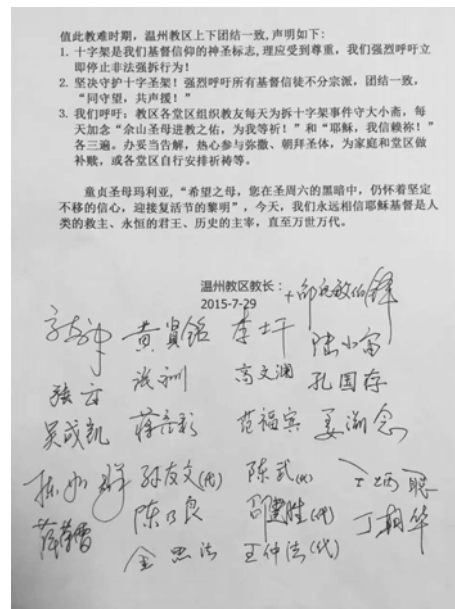 值此教难时期，温州教区上下团结一致,声明如下:
1. 十字架是我们基督信仰的神圣标志,理应受到尊重，我们强烈呼吁立
即停止非法强拆行为！
2. 坚决守护十字圣架！强烈呼吁所有基督信徒不分宗派，团结一致，
“同守望，共声援！”
3. 我们呼吁：教区各堂区组织教友每天为拆十字架事件守大小斋，每
天加念“佘山圣母进教之佑，为我等祈！”和“耶稣，我信赖祢！”
各三遍。办妥当告解，热心参与弥撒、朝拜圣体，为家庭和堂区做
补赎，或各堂区自行安排祈祷等。
童贞圣母玛利亚,“希望之母，您在圣周六的黑暗中，仍怀着坚定
不移的信心，迎接复活节的黎明”，今天，我们永远相信耶稣基督是人
类的救主、永恒的君王、历史的主宰，直至万世万代。
温州教区教长：
2015-7-29
黄贤铭 李士干 陆小富
高文渊 孔国存
吴成凯 范福宾 姜渝念
孙友文(代) 陈武(代) 丁炳聪
陈乃良 邵建胜(代) 丁朝华
金思法 王仲法(代)